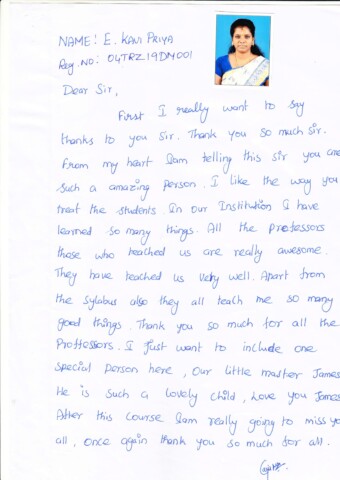 NAME: E. KANI PRIYA
Reg. NO: 04TRZ19DM001
Dear Sir,
First I really want to say
thanks to you sir. Thank you so much sir.
From my heart Iam telling this sir you are
such a amazing person. I like the way you
treat the students. In our Institution I have
learned so many things. All the Professors
those who teached us are really awesome.
They have teached us very well. Apart from
the sylabus also they all teach me so many
good things. Thank you so much for all the
Proffessors. I Just want to include one
special person here, Our little master James
He is such a lovely child, Love you James
After this course Iam really going to miss you
all, once again thank you so much for all.